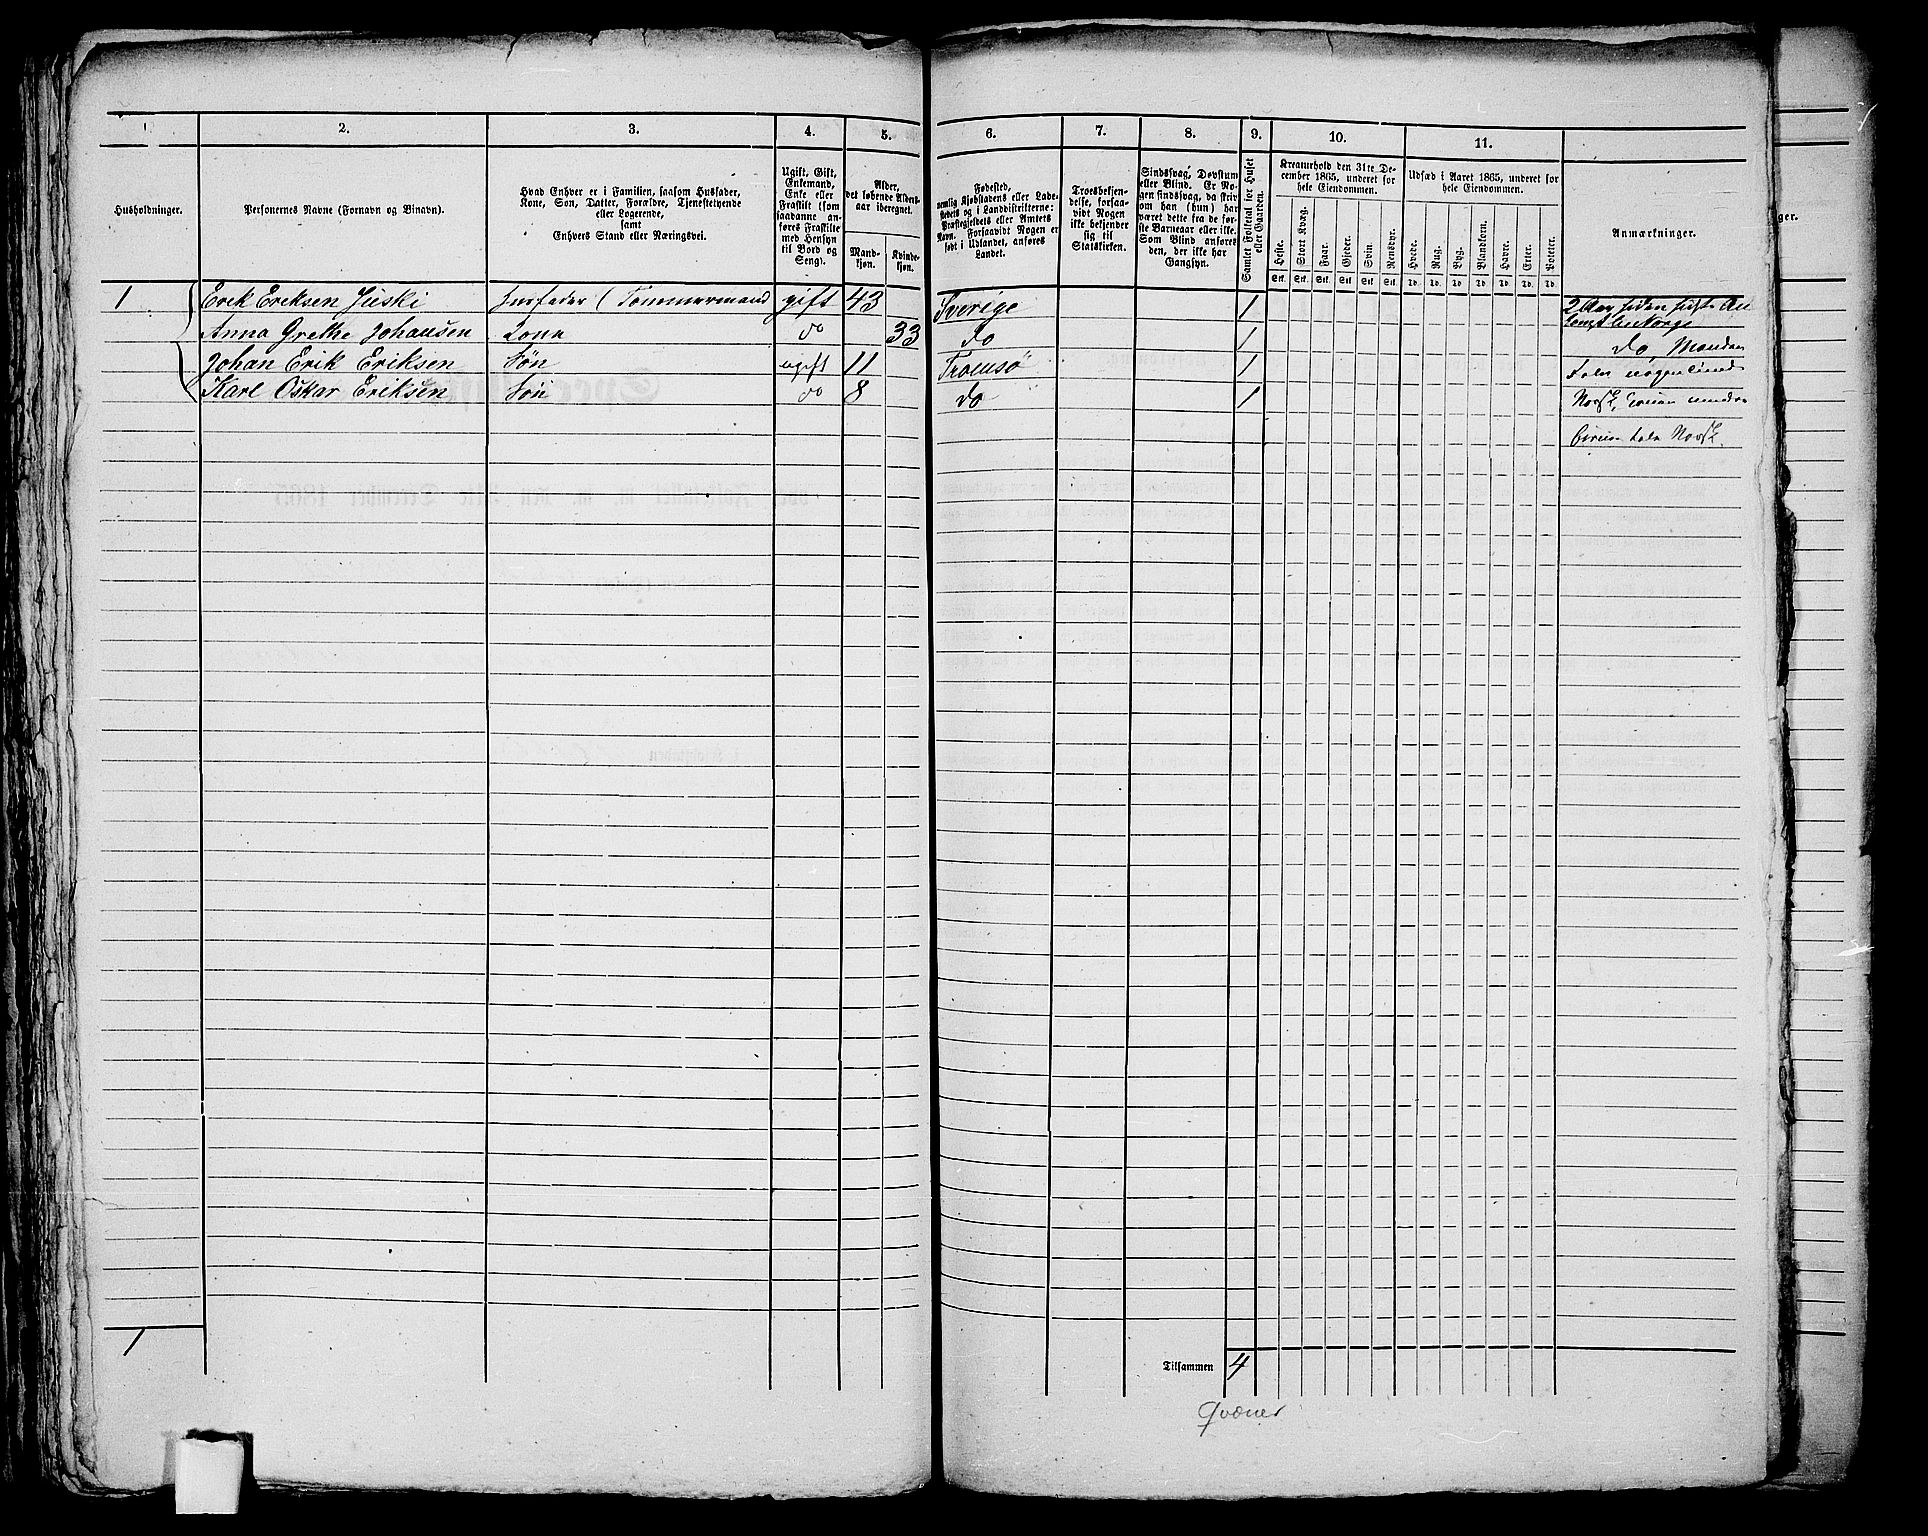 1 2. 3. 4. 5. 6. 7. 8. 9. 10. 11.
Husholdninger.
Personernes Navne (Fornavn og Binavn).
Hvad Enhver er i Familien, saasom Husfader,
Kone, Søn, Datter, Forældre, Tjenestetyende
eller Logerende,
samt
Enhvers Stand eller Næringsvei.
Ugift, Gift,
Enkemand,
Enke eller
Fraskilt (som
saadanne an-
føres Fraskilte
med Hensyn
til Bord og
Seng).
Alder,
det løbende Alders-
aar iberegnet.
Mand-
kjøn.
Kvinde-
kjøn.
Fødested,
nemlig Kjøbstadens eller Lade-
stedets og i Landdistrikterne:
Præstegjeldets eller Amtets
Navn. Forsaavidt Nogen er
født i Udlandet, anføres
Landet.
Troesbekjen-
delse, forsaa-
vidt Nogen
ikke bekjender
sig til
Statskirken.
Sindssvag, Døvstum
eller Blind. Er No-
gen sindssvag, da skriv
om han (hun) har
været dette fra de før-
ste Barneaar eller ikke.
Som Blind anføres
den, der ikke har
Gangsyn.
Samlet Folketal for Huset
eller Gaarden.
Kreaturhold den 31te De-
cember 1865, underet for
hele Eiendommen.
Heste. Stort Kvæg. Faar. Gjeder. Svin. Rensdyr.
Stk. Stk. Stk. Stk. Stk. Stk.
Udsæd i Aaret 1865, underet for
hele Eiendommen.
Hvede. Rug. Byg. Blandkorn. Havre. Erter. Poteter.
Td. Td. Td. Td. Td. Td. Td.
Anmærkninger.
1 Erik Eriksen Juski Husfader (Tømmermand gift 43 Sverige 1 2 Aar siden sidste An
Anna Grethe Johansen Kona do 33 do 1 do, Manden
Johan Erik Eriksen Søn ugift 11 Tromsø 1
Karl Oskar Eriksen Søn do 8 do 1 Norsk,
Norsk.
1
Tilsammen 4
Qvæner